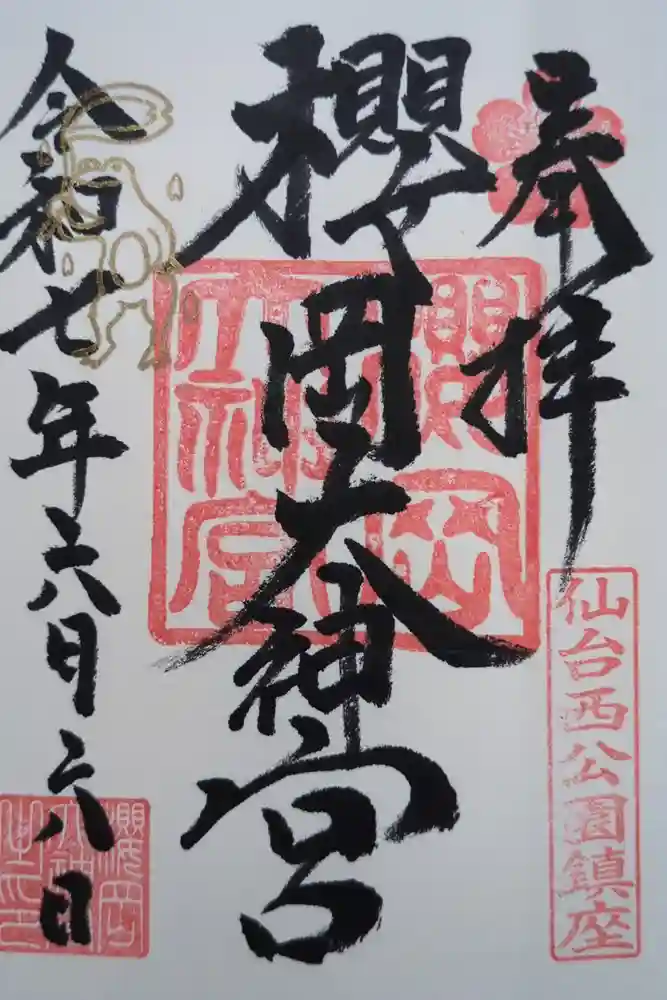 奉拝
櫻岡大神宮
令和七年六月六日
仙台西公園鎮座
櫻岡大神宮